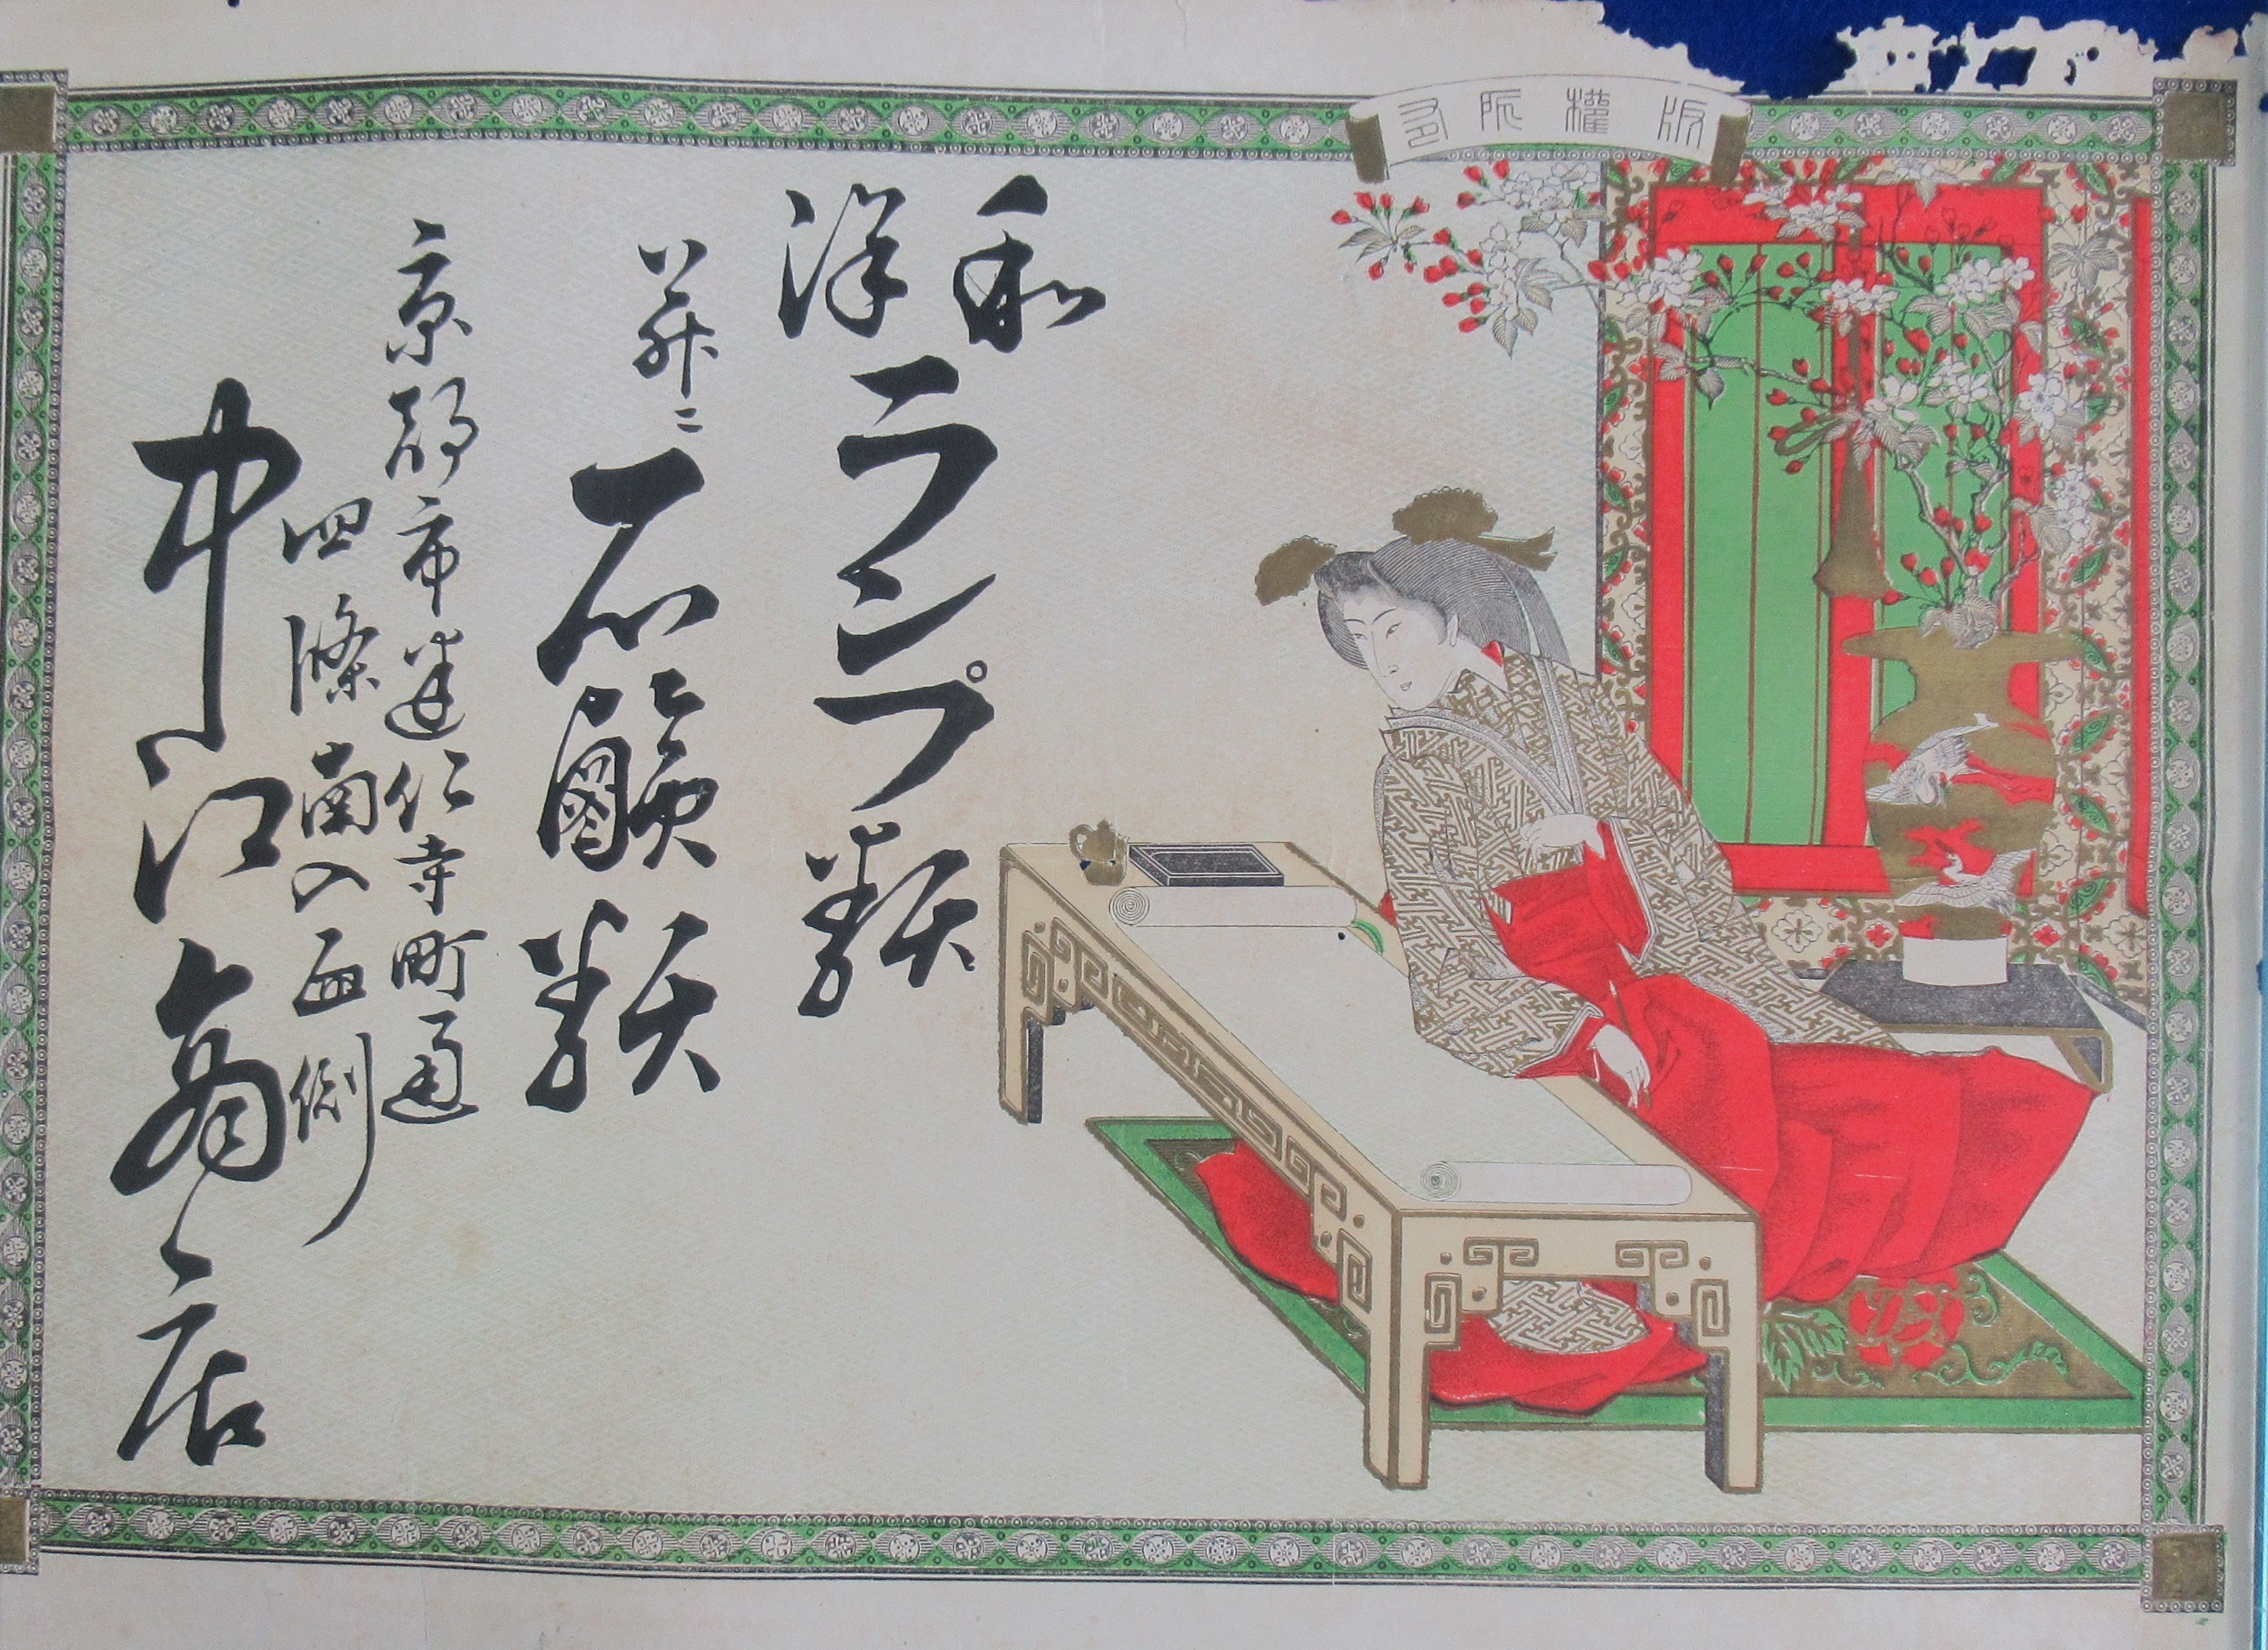 版權所有
和洋ランプ類
并ニ石鹼類
京都市建仁寺町通
四條南入西側
中江商店